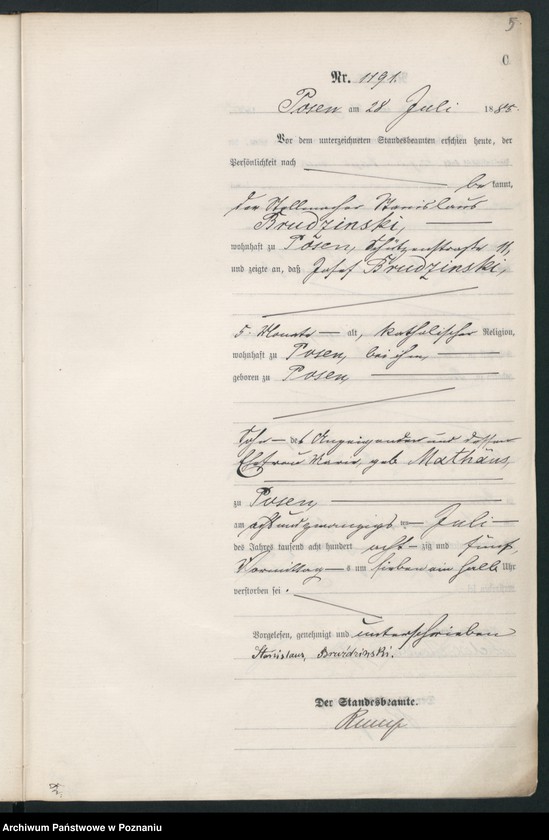 5
C
Nr. 1191.
Posen am 28 Juli 1885.
Vor dem unterzeichneten Standesbeamten erschien heute, der
Persönlichkeit nach
be kannt,
der Stellmacher Stanislaus
Brudzinski,
wohnhaft zu Posen, Schützenstraße
und zeigte an, daß Josef Brudzinski,
5 Monate alt, katholischer Religion,
wohnhaft zu Posen, bei ihm,
geboren zu Posen,
Sohn des Anzeigenden und dessen
Ehefrau Marie, geb. Mathäus,
zu Posen,
am acht und zwanzigsten Juli
des Jahres tausend acht hundert acht zig und fünf
Vormittags um sieben ein halb Uhr
verstorben sei.
Vorgelesen, genehmigt und unterschrieben
Stanislaus, Brudzinski.
Der Standesbeamte.
Archiwum Państwowe w Poznaniu